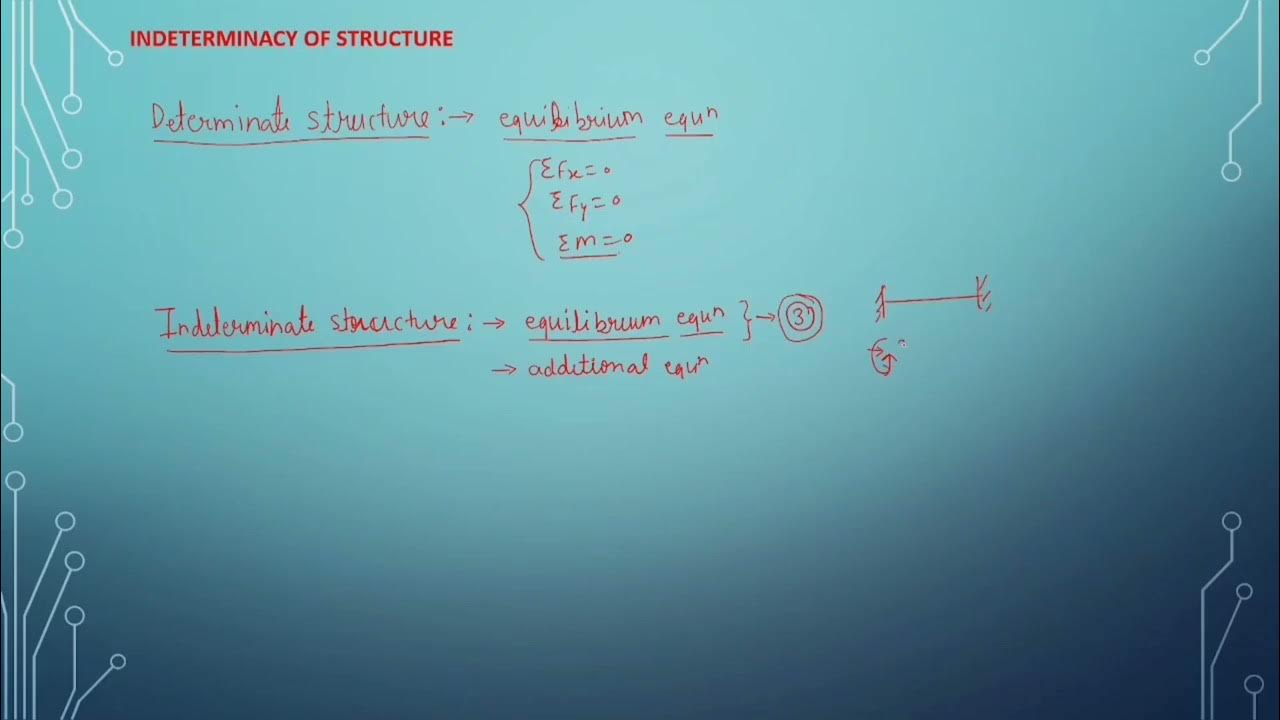 INDETERMINACY OF STRUCTURE
Determinate structure :→ equilibrium equn
ΣFx=0
ΣFy=0
ΣM=0
Indeterminate structure : → equilibrium equn } → 3
→ additional equn